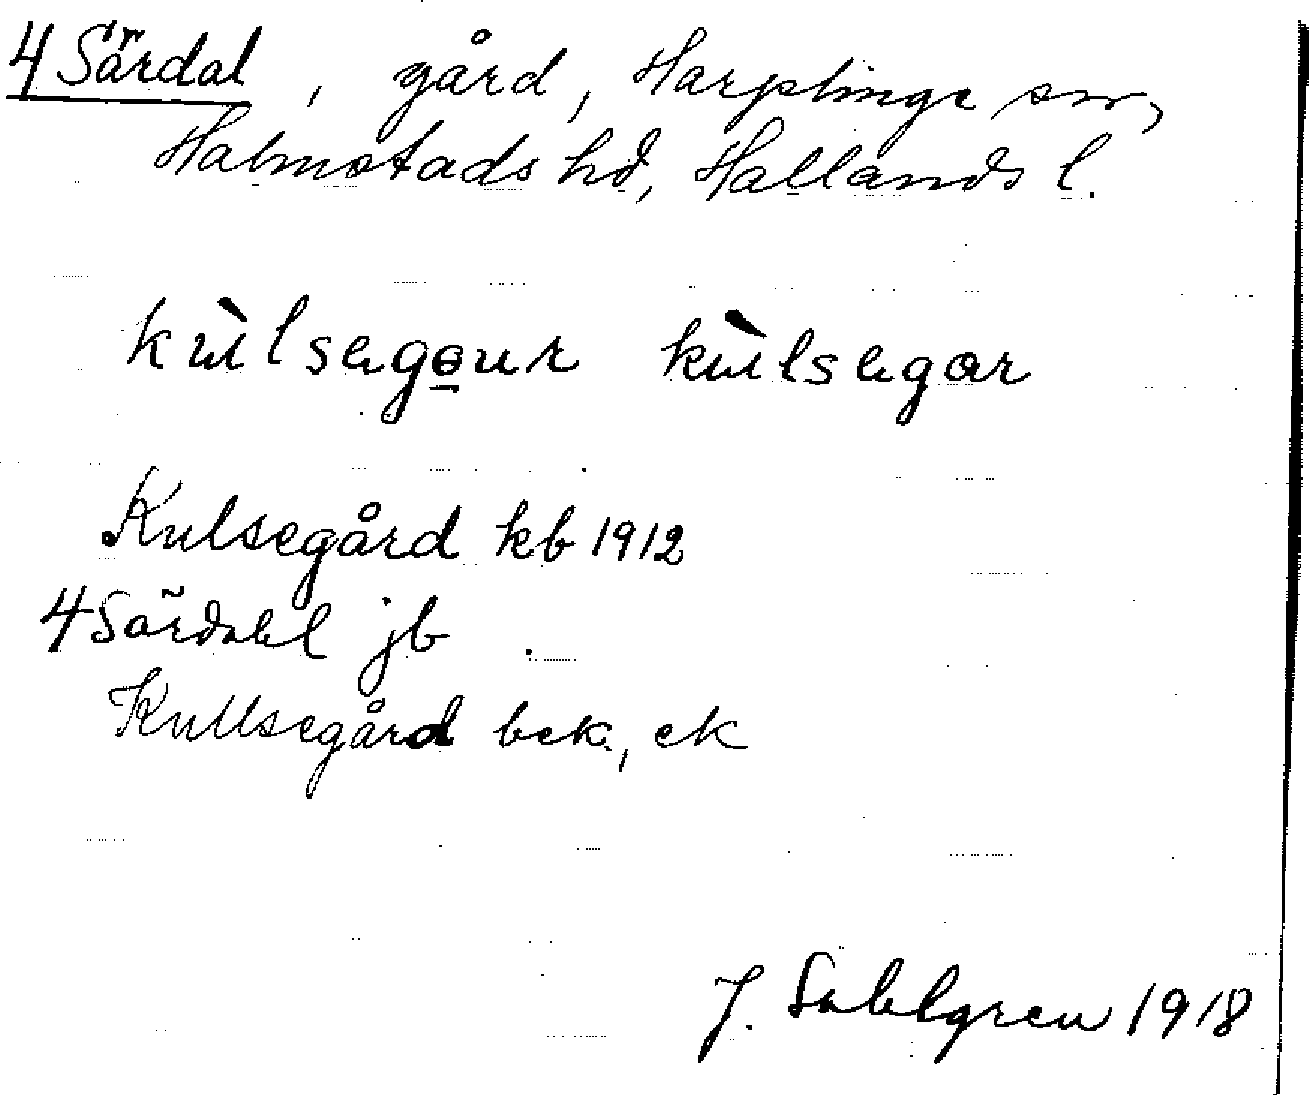 4 Särdal, gård, Harplinge sn,
Halmstads hd, Hallands l.
kùlsagour kùlsagar
Kulsegård kb 1912
4 Särdahl jb
Kullsegård bek, ek
J. Sahlgren 1918